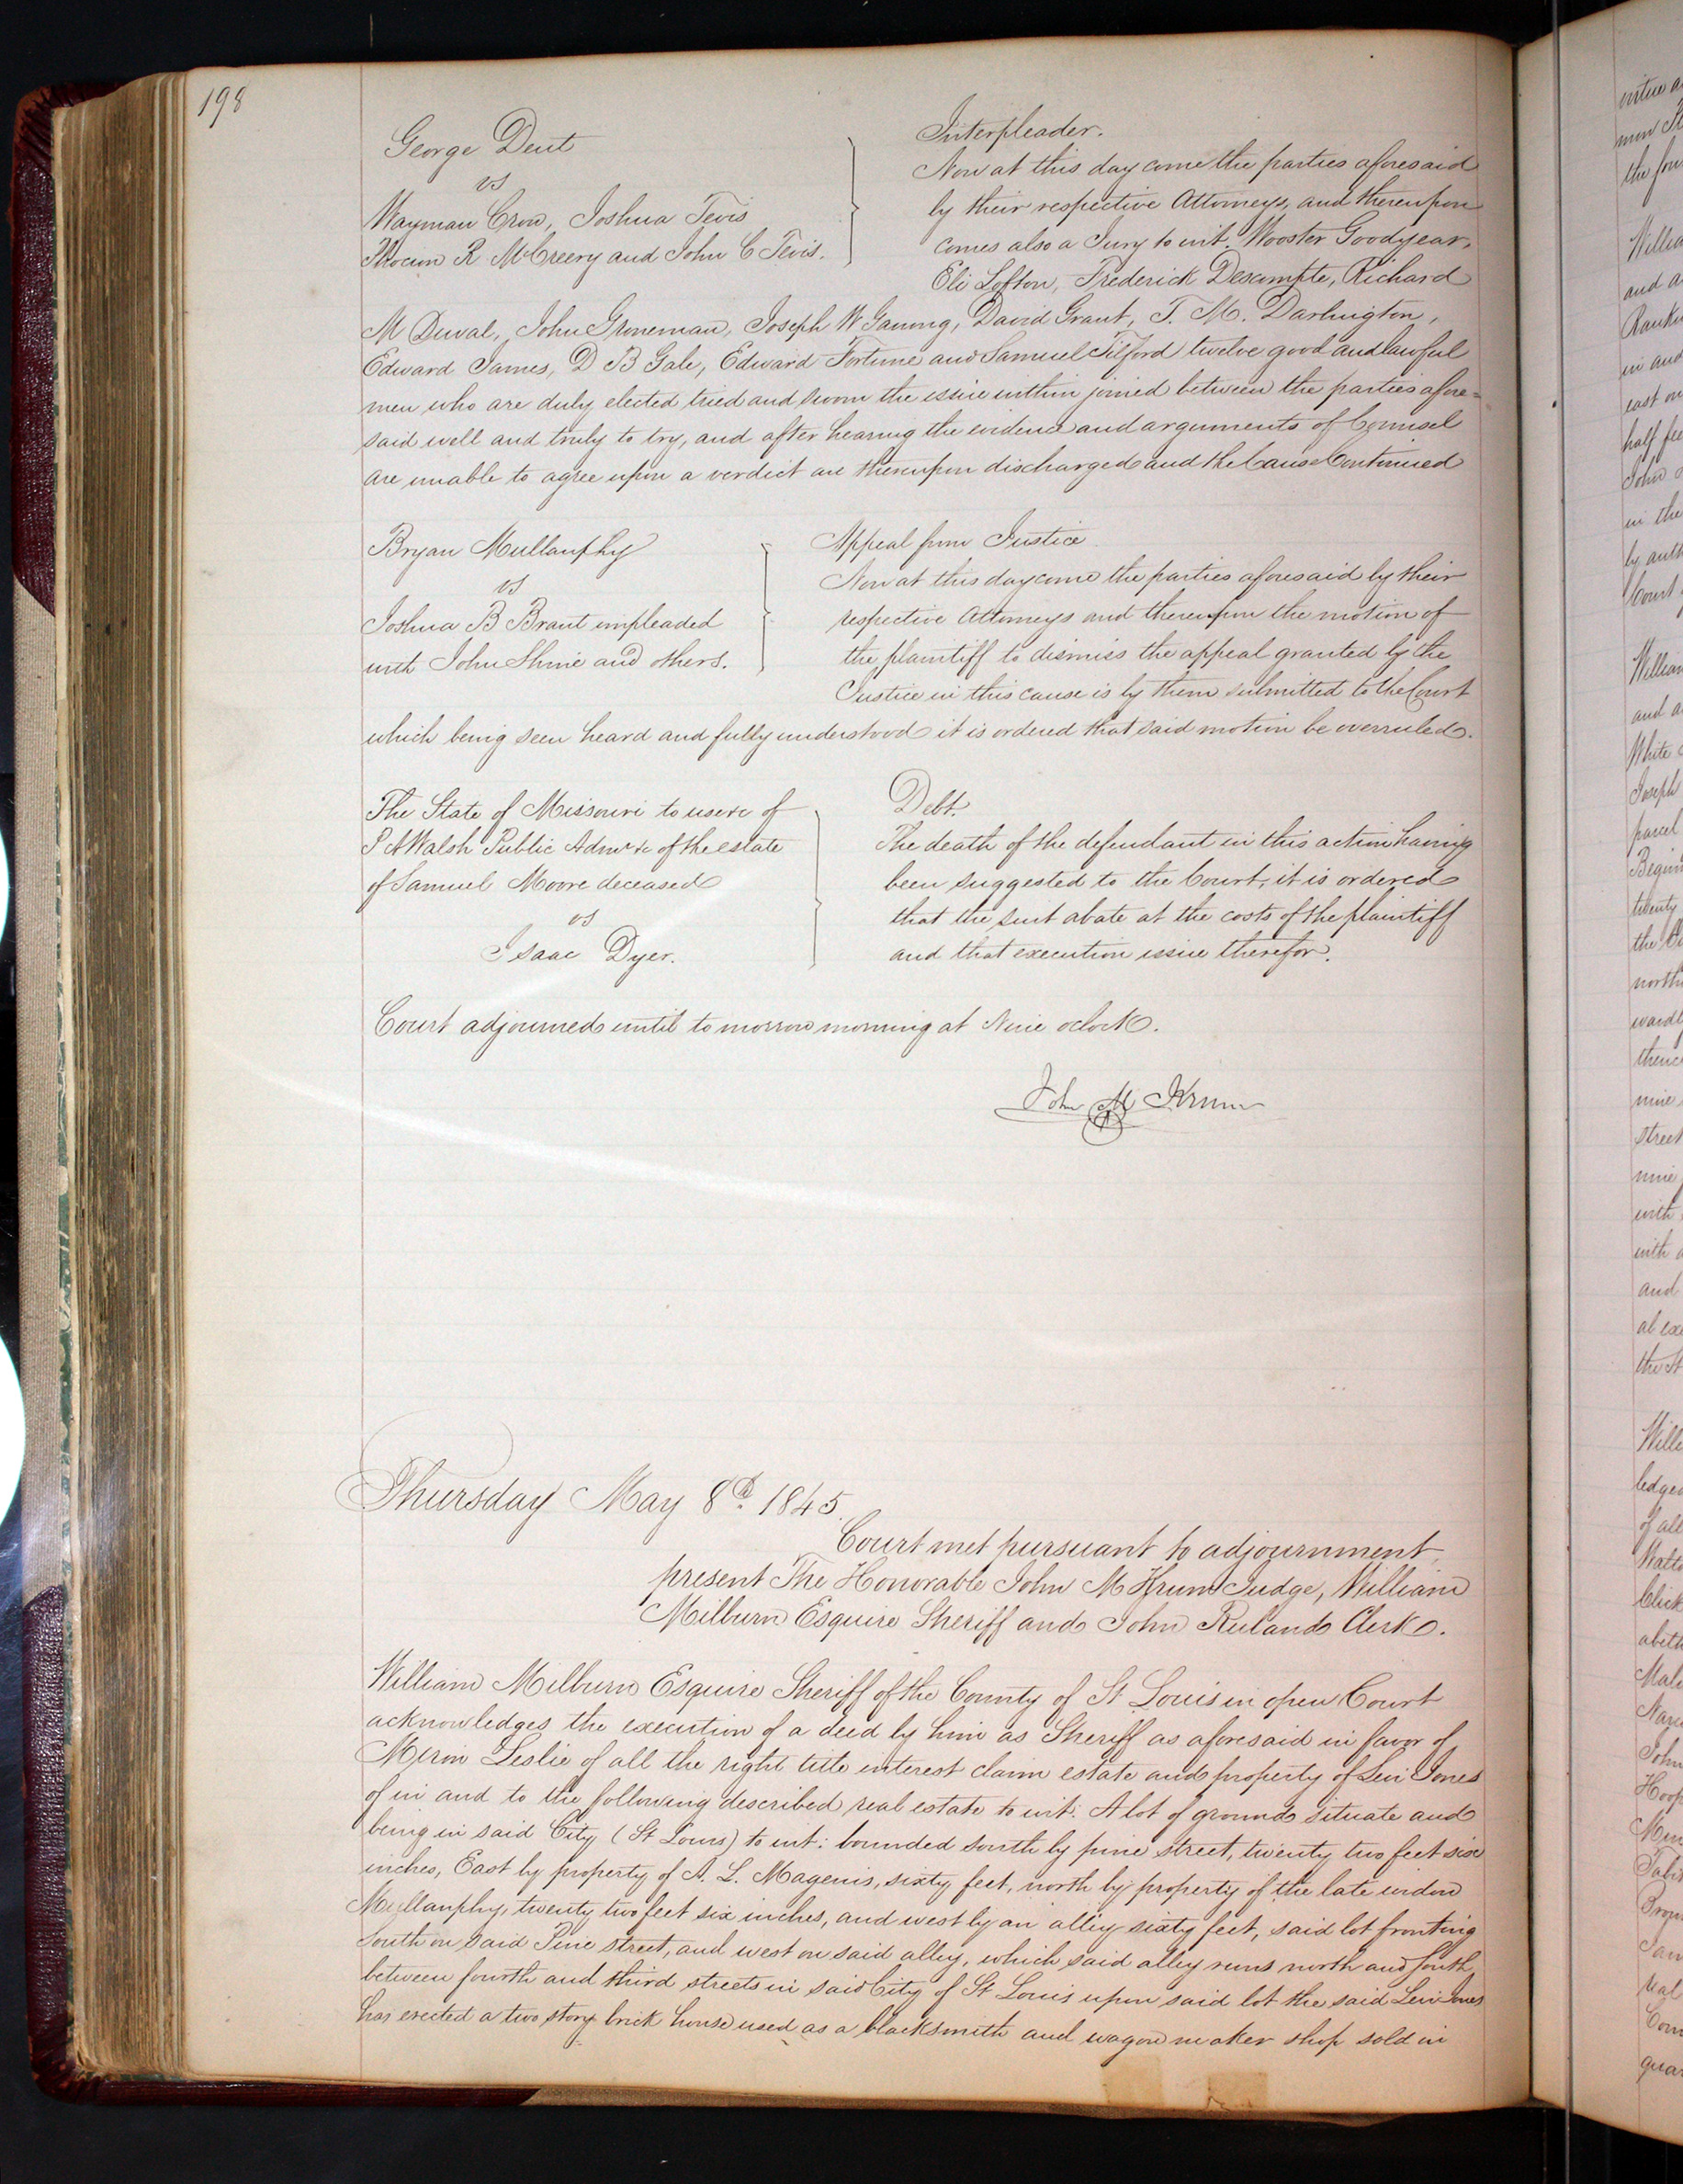 198
George Dent
vs
Wayman Crow, Joshua Tevis
Phocion R McCreery and John C Tevis.
Interpleader.
Now at this day come the parties aforesaid
by their respective Attorneys, and thereupon
comes also a Jury to wit. Wooster Goodyear,
Eli Lofton, Frederick Descompte, Richard
M Duval, John Groneman, Joseph W Ganong, David Grant, T. M. Darlington,
Edward James, D B Gale, Edward Fortune and Samuel Tilford twelve good and lawful
men who are duly elected tried and sworn the issue within joined between the parties afore=
said well and truly to try, and after hearing the evidence and arguments of Counsel
are unable to agree upon a verdict are thereupon discharged and the Cause Continued
Bryan Mullanphy
vs
Joshua B Brant impleaded
with John Shine and others.
Appeal from Justice
Now at this day come the parties aforesaid by their
respective Attorneys and thereupon the motion of
the plaintiff to dismiss the appeal granted by the
Justice in this cause is by them submitted to the Court
which being seen heard and fully understood it is ordered that said motion be overruled.
The State of Missouri to use &c of
P A Walsh Public Admr &c of the estate
of Samuel Moore deceased
vs
Isaac Dyer.
Debt.
The death of the defendant in this action having
been suggested to the Court, it is ordered
that the suit abate at the costs of the plaintiff
and that execution issue therefor.
Court adjourned until to morrow morning at Nine oclock.
John M Krum
Thursday May 8th 1845.
Court met pursuant to adjournment,
present The Honorable John M Krum Judge, William
Milburn Esquire Sheriff and John Ruland Clerk.
William Milburn Esquire Sheriff of the County of St Louis in open Court
acknowledges the execution of a deed by him as Sheriff as aforesaid in favor of
Miron Leslie of all the right title interest claim estate and property of Levi Jones
of in and to the following described real estate to wit: A lot of ground situate and
being in said City (St Louis) to wit: bounded south by pine street, twenty two feet six
inches, East by property of A. L. Magenis, sixty feet, north by property of the late widow
Mullanphy, twenty two feet six inches, and west by an alley sixty feet, said lot fronting
south on said Pine street, and west on said alley, which said alley runs north and south
between fourth and third streets in said City of St Louis upon said lot the said Levi Jones
has erected a two story brick house used as a blacksmith and wagon maker shop sold in